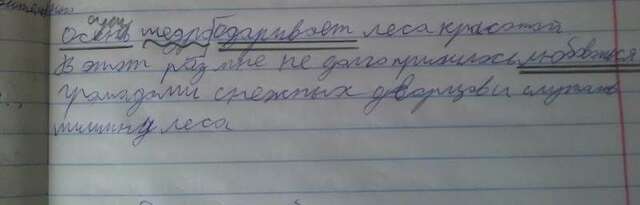 Осень щедро одаривает леса красотой
В этот раз мне не долго пришлось любоваться
громадами снежных дворцов и слушать
тишину леса